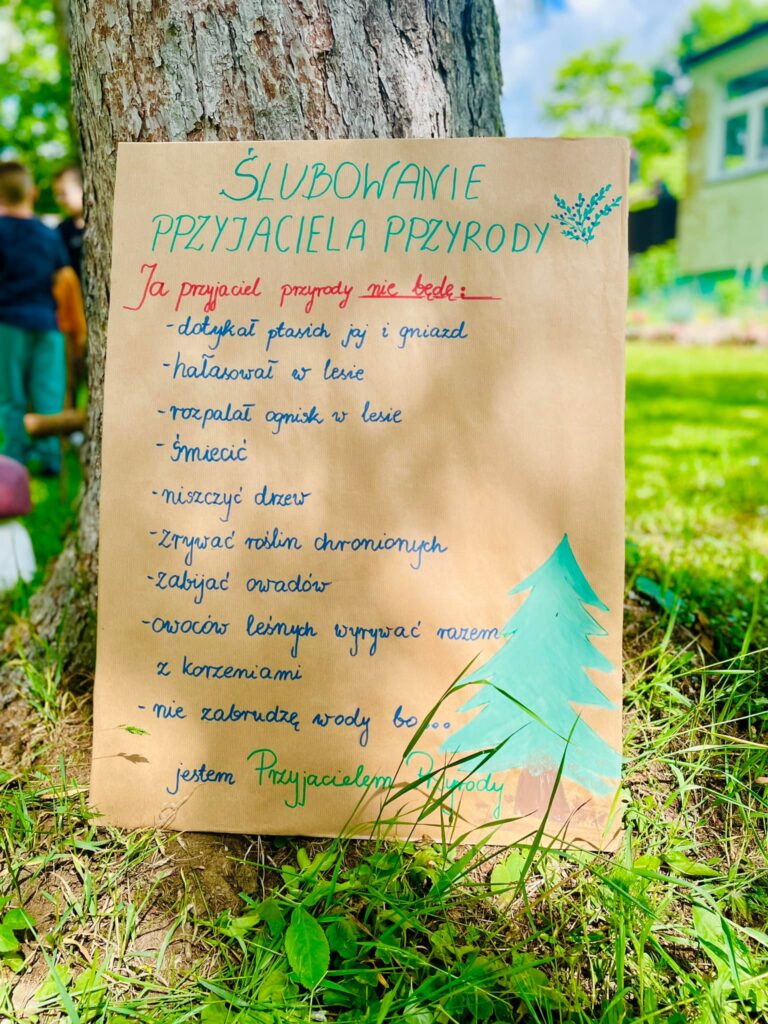 ŚLUBOWANIE
PRZYJACIELA PRZYRODY
Ja przyjaciel przyrody nie będę:
-dotykał ptasich jaj i gniazd
-hałasował w lesie
-rozpalał ognisk w lesie
-śmiecić
-niszczyć drzew
-zrywać roślin chronionych
-zabijać owadów
-owoców leśnych wyrywać razem
z korzeniami
-nie zabrudzę wody bo...
jestem Przyjacielem Przyrody